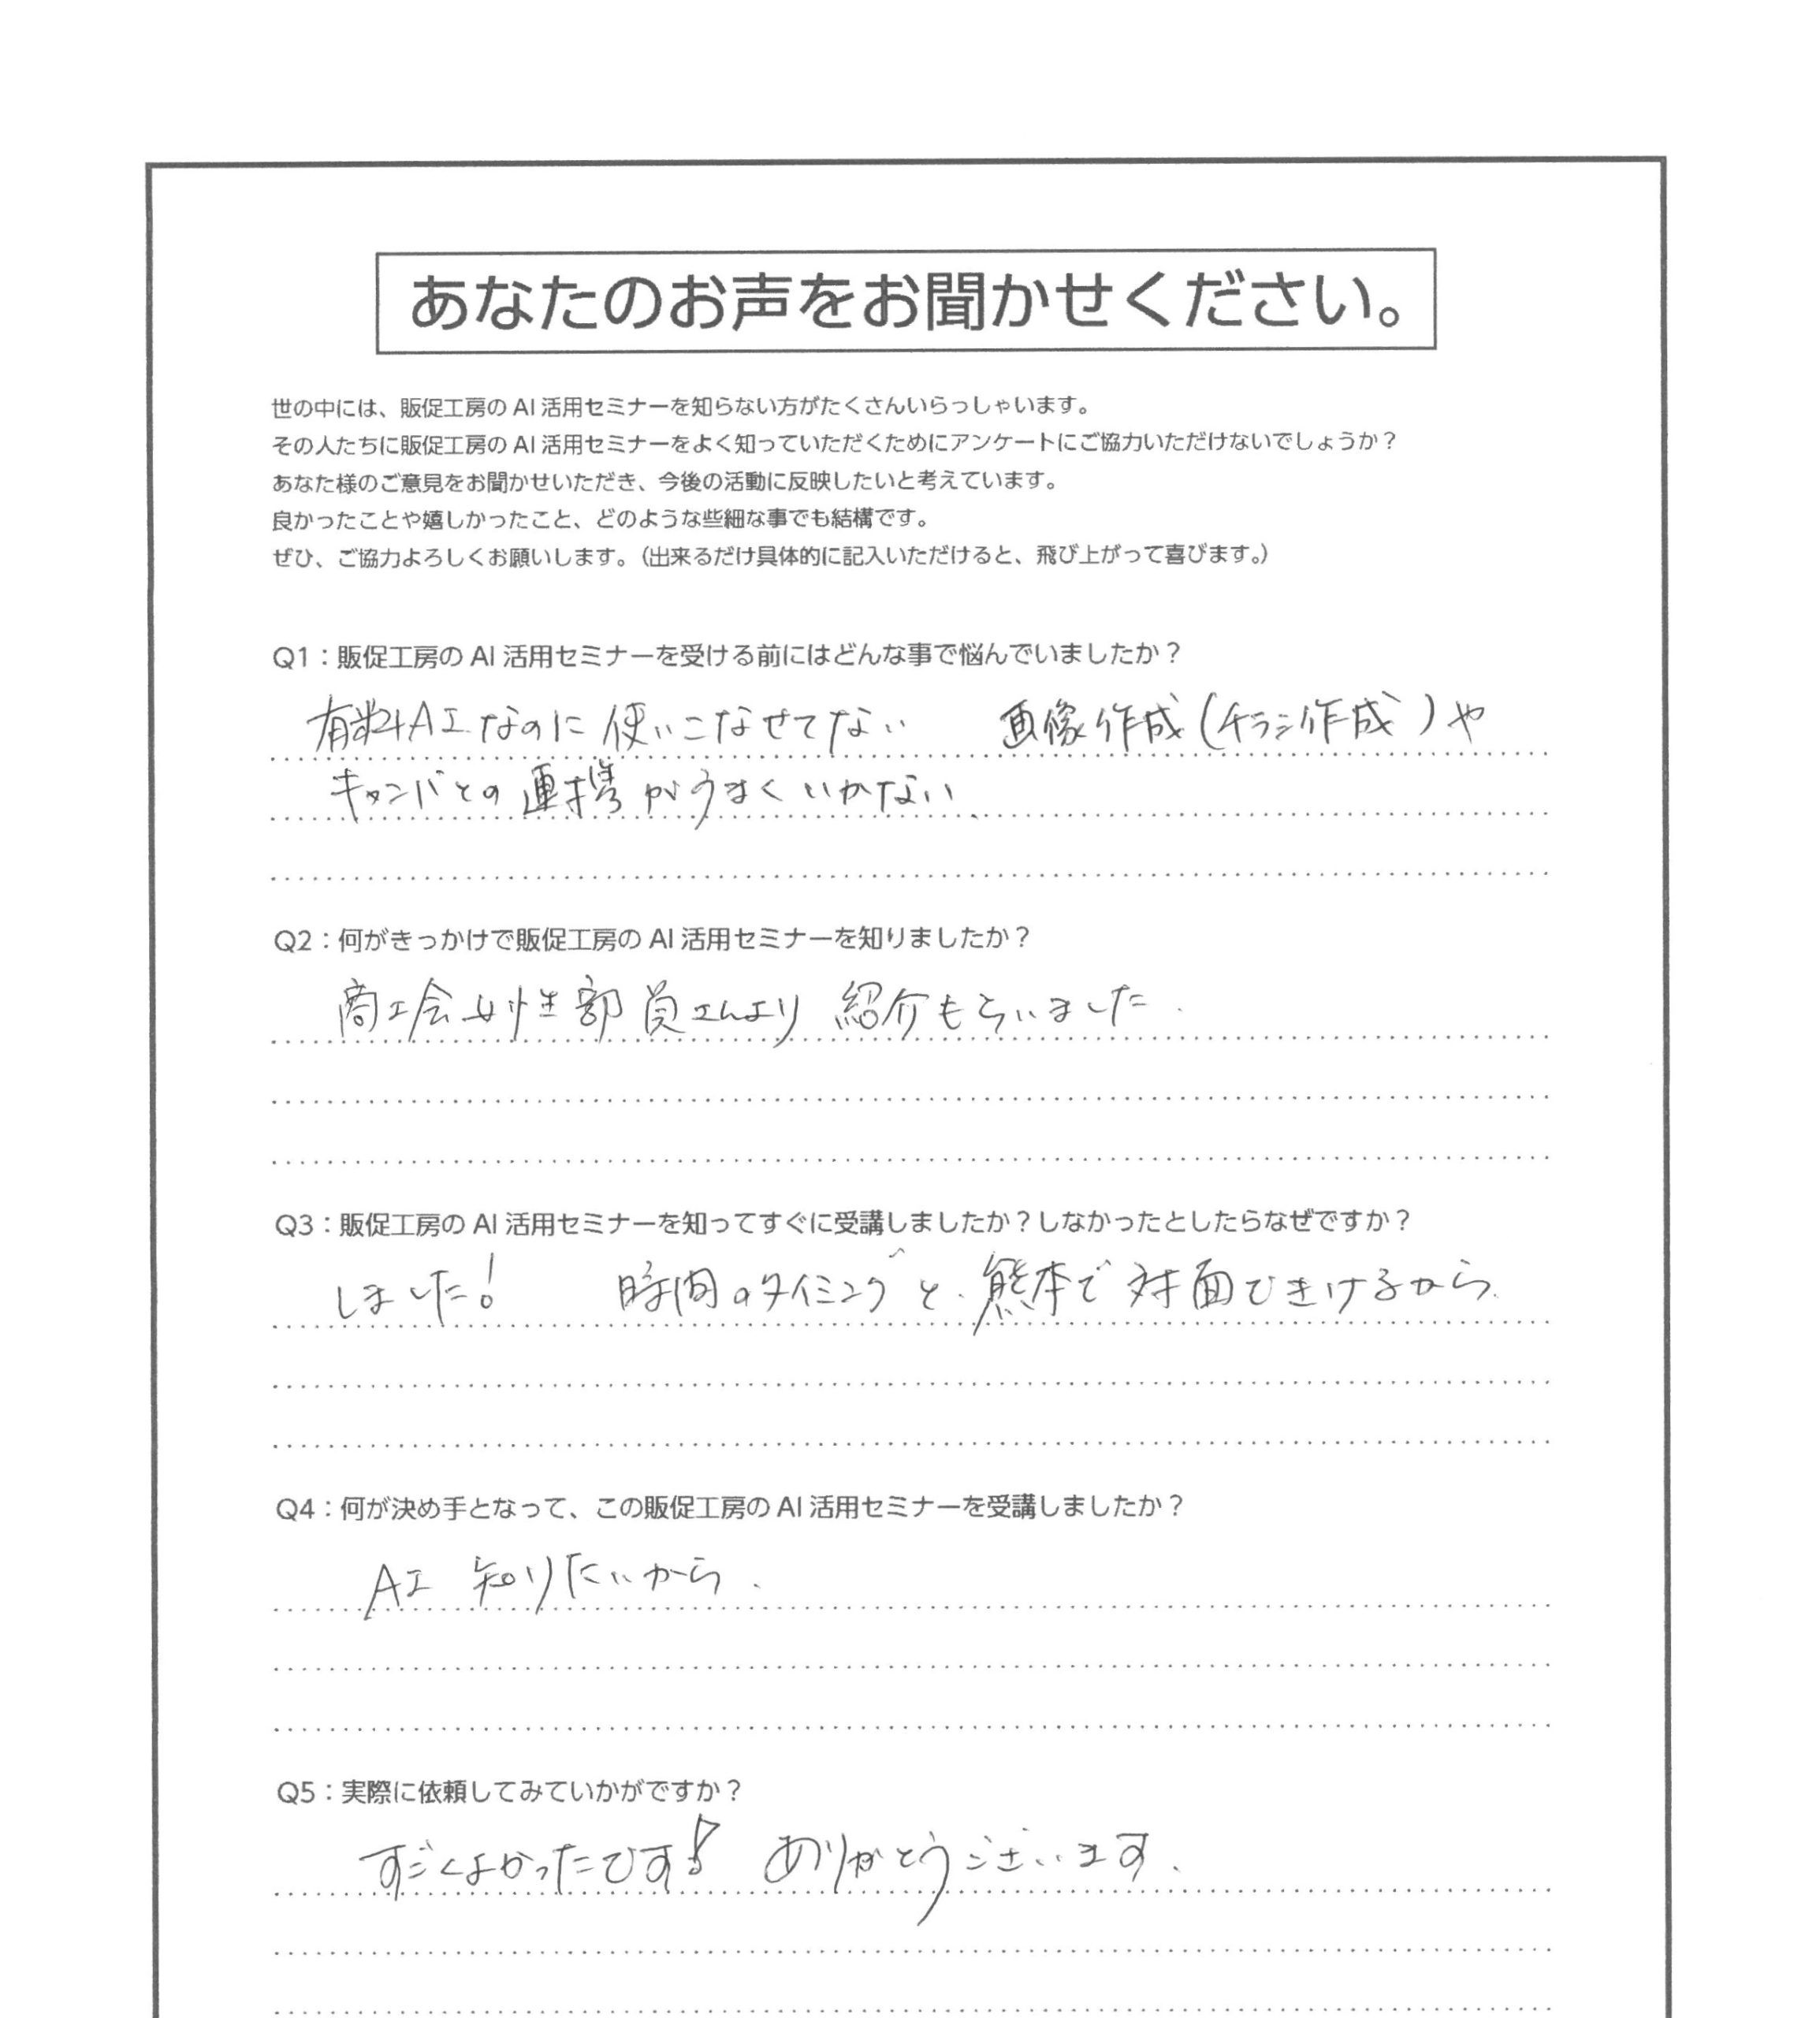 あなたのお声をお聞かせください。
世の中には、販促工房の AI 活用セミナーを知らない方がたくさんいらっしゃいます。
その人たちに販促工房の AI 活用セミナーをよく知っていただくためにアンケートにご協力いただけないでしょうか？
あなた様のご意見をお聞かせいただき、今後の活動に反映したいと考えています。
良かったことや嬉しかったこと、どのような些細な事でも結構です。
ぜひ、ご協力よろしくお願いします。（出来るだけ具体的に記入いただけると、飛び上がって喜びます。）
Q1：販促工房の AI 活用セミナーを受ける前にはどんな事で悩んでいましたか？
有料AIなのに使いこなせてない　画像作成（チラシ作成）や
キャンバとの連携がうまくいかない
Q2：何がきっかけで販促工房の AI 活用セミナーを知りましたか？
商工会女性部員さんより紹介もらいました.
Q3：販促工房の AI 活用セミナーを知ってすぐに受講しましたか？しなかったとしたらなぜですか？
しました！　時間のタイミングと.熊本で対面できけるから.
Q4：何が決め手となって、この販促工房の AI 活用セミナーを受講しましたか？
AI 知りたいから.
Q5：実際に依頼してみていかがですか？
すごくよかったです！ ありがとうございます.